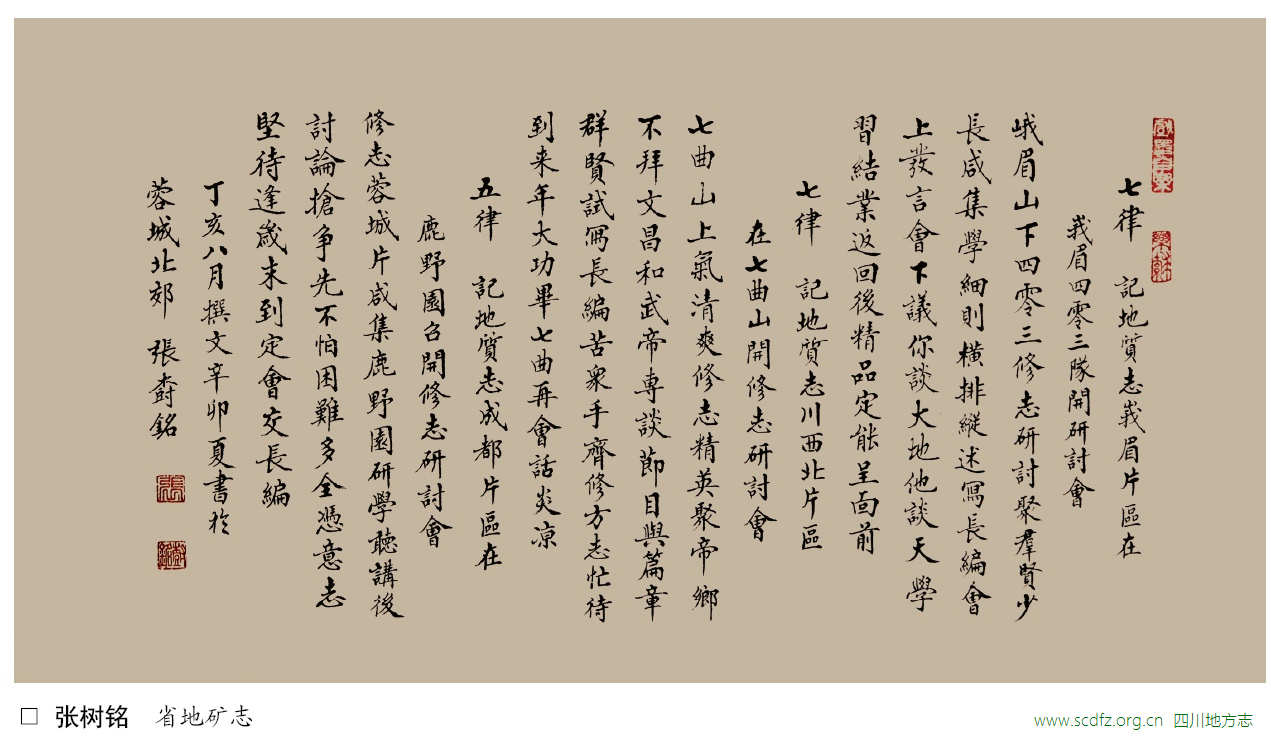 七律 記地質志峩眉片區在
峩眉四零三隊開研討會
峨眉山下四零三修志研討聚羣賢少
長咸集學細則橫排縱述寫長編會
上發言會下議你談大地他談天學
習結業返回後精品定能呈面前
七律 記地質志川西北片區
在七曲山開修志研討會
七曲山上氣清爽修志精英聚帝鄉
不拜文昌和武帝專談節目與篇章
群賢試寫長編苦衆手齊修方志忙待
到来年大功畢七曲再會話炎凉
五律 記地質志成都片區在
鹿野園召開修志研討會
修志蓉城片咸集鹿野園研學聽講後
討論搶争先不怕困難多全憑意志
堅待逢歲末到定會交長編
丁亥八月撰文辛卯夏書於
蓉城北郊 張樹銘
□ 张树铭 省地矿志
www.scdfz.org.cn 四川地方志